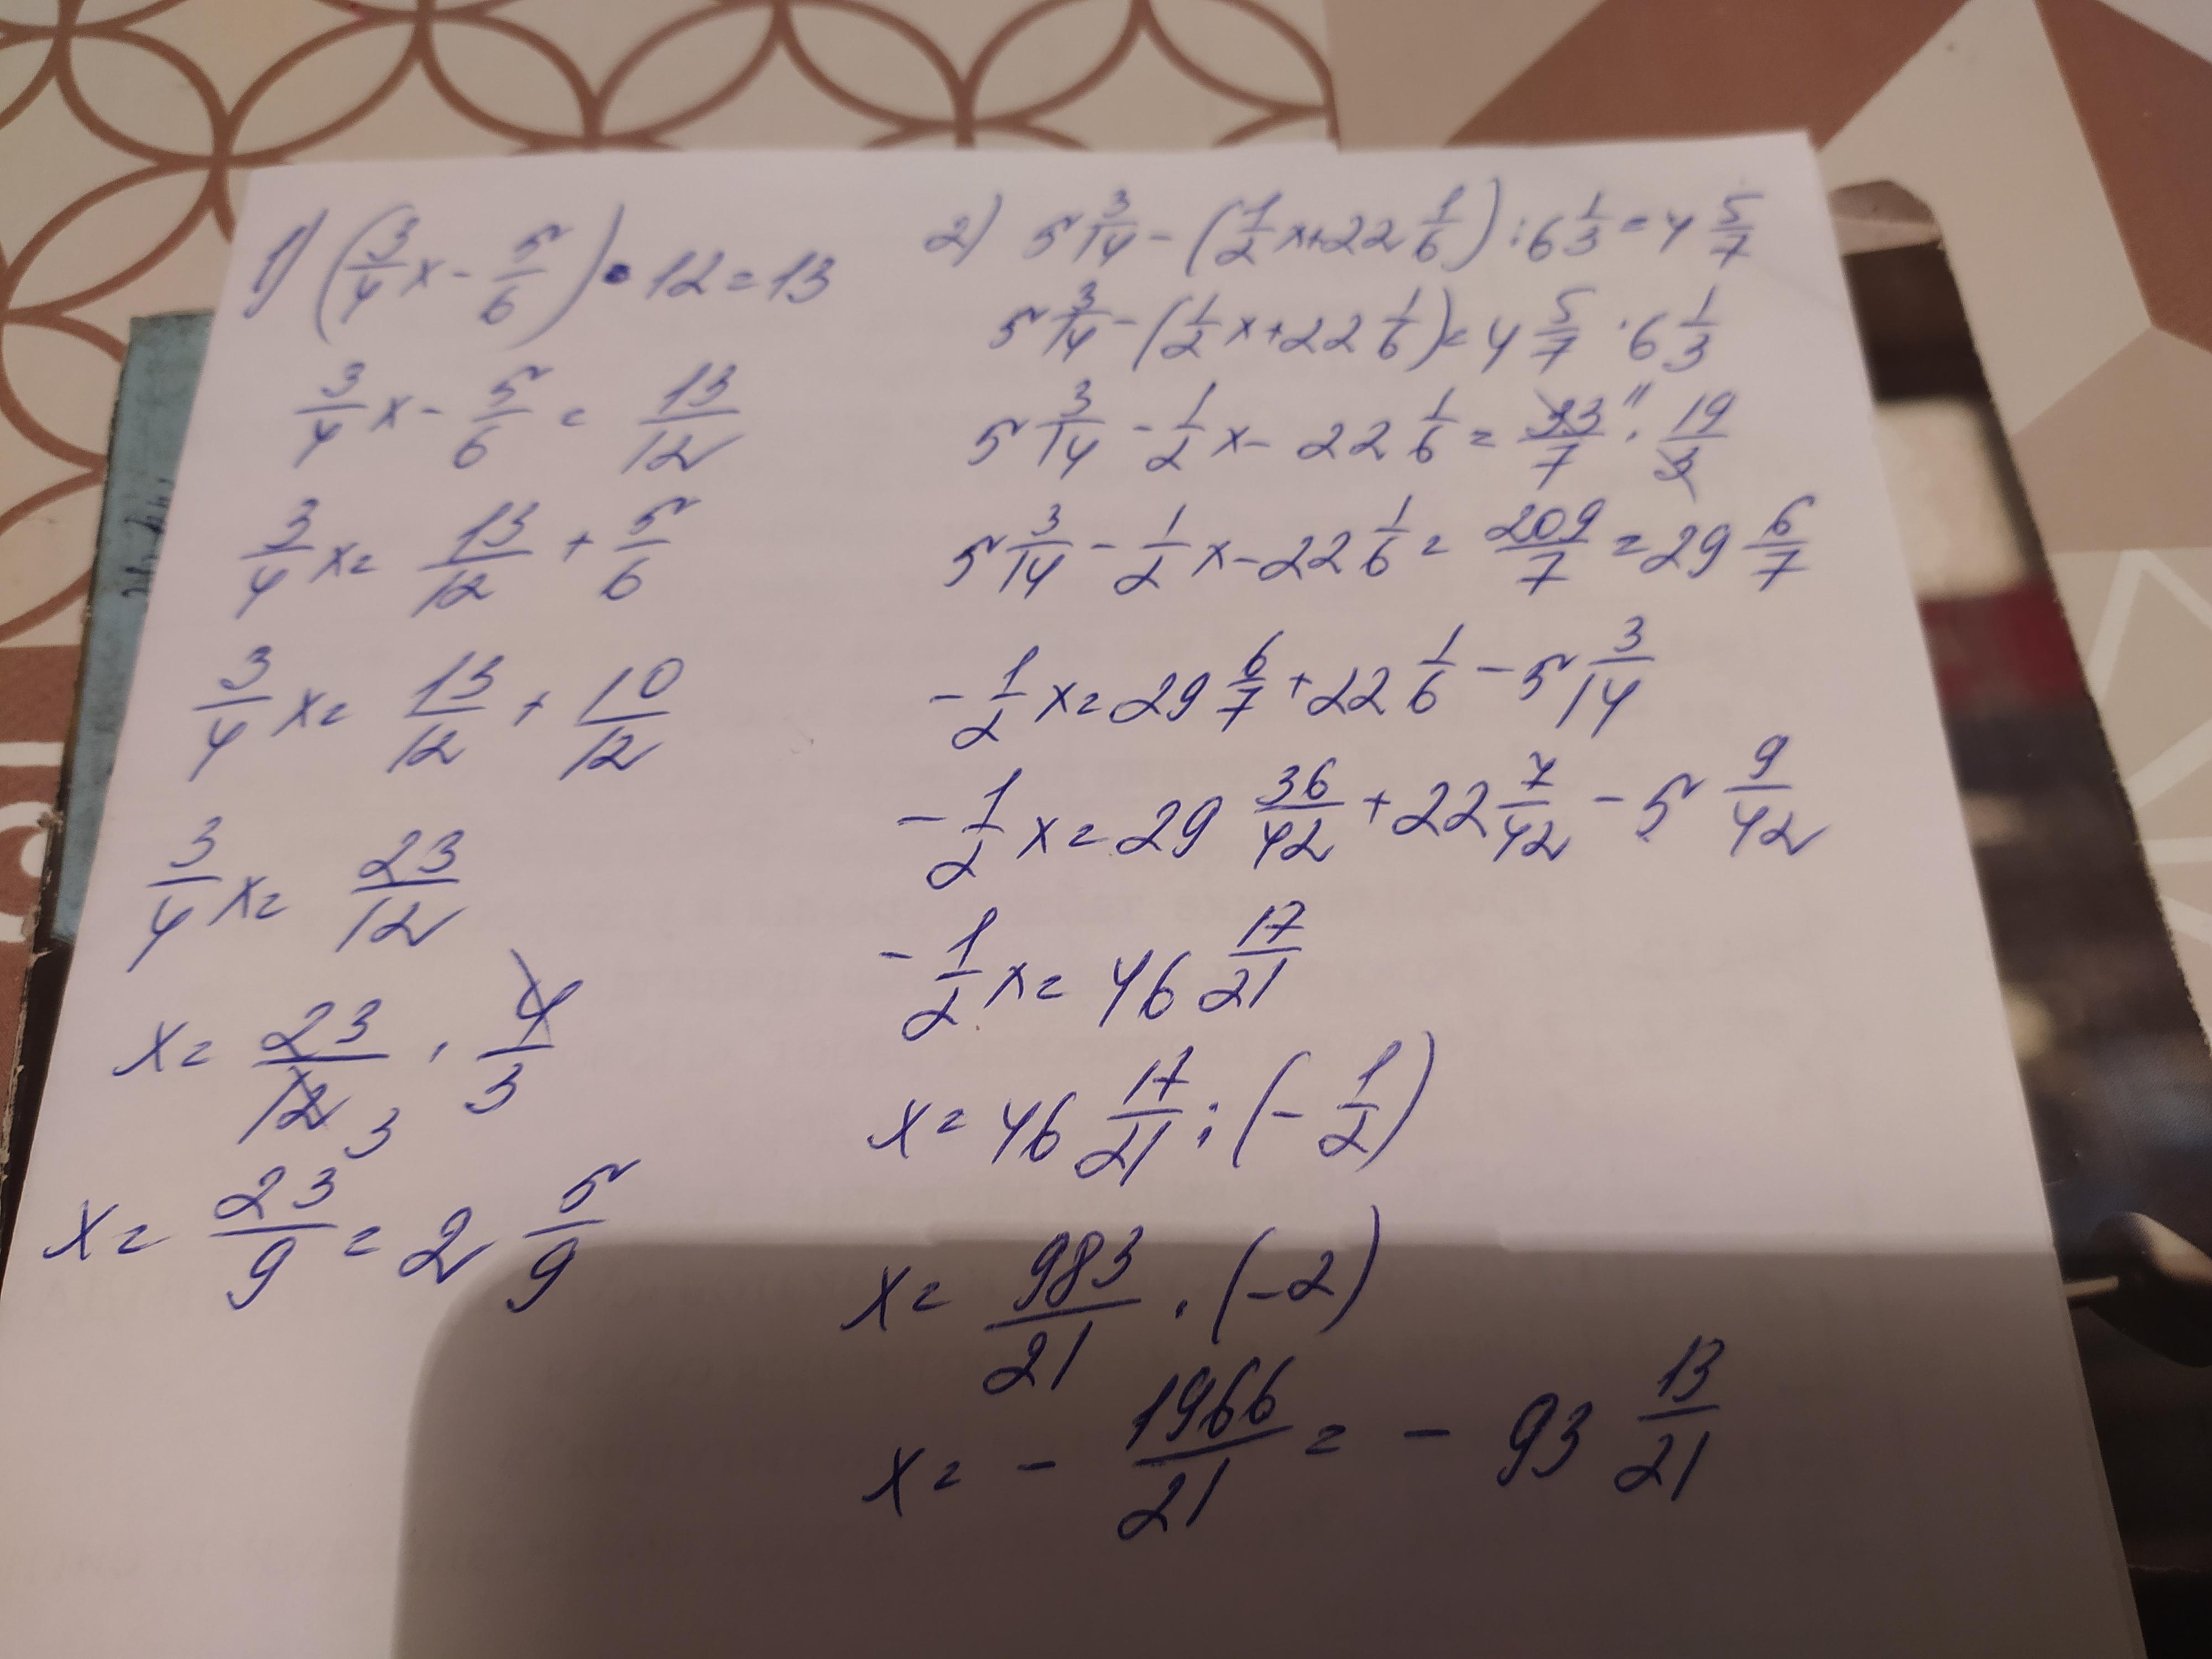 1) (3/4 x - 5/6) • 12 = 13
3/4 x - 5/6 = 13/12
3/4 x = 13/12 + 5/6
3/4 x = 13/12 + 10/12
3/4 x = 23/12
x = 23/12 3 · 4/3
x = 23/9 = 2 5/9
2) 5 3/14 - (1/2 x + 22 1/6) : 6 1/3 = 4 5/7
5 3/14 - (1/2 x + 22 1/6) = 4 5/7 · 6 1/3
5 3/14 - 1/2 x - 22 1/6 = 33/7 11 · 19/3
5 3/14 - 1/2 x - 22 1/6 = 209/7 = 29 6/7
- 1/2 x = 29 6/7 + 22 1/6 - 5 3/14
- 1/2 x = 29 36/42 + 22 7/42 - 5 9/42
- 1/2 x = 46 17/21
x = 46 17/21 : (- 1/2)
x = 983/21 · (-2)
x = - 1966/21 = - 93 13/21